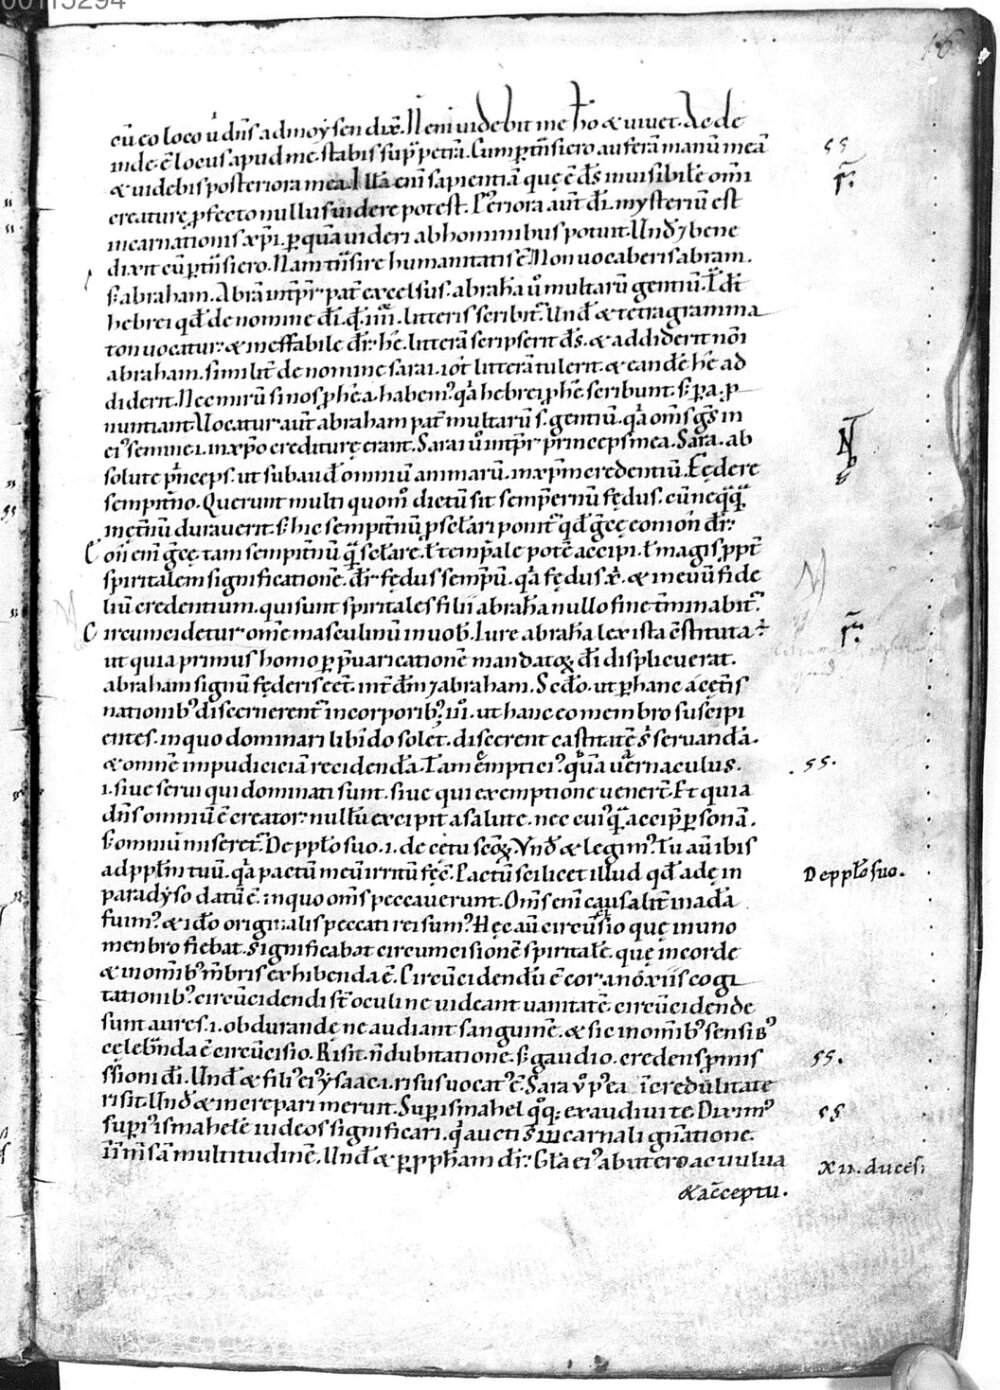 00115294
16
cū eo loco ū dñs ad moysen dix̄. N̄ eni uidebit me hō & uiuet. Ac de
inde. ē locus apud me. stabis sup̄ petrā. Cum p̄tñsiero. auferā manū meā
& uidebis posteriora mea. Illā enī sapientiā quę ē dī inuisibilē om̄i
creaturę p̄fecto nullus uidere potest. P̄teriora aut̄ dī. mysteriū est
incarnationis xp̄i. p̄ quā uideri ab hominibus potuit. Unđ ⁊ bene
dixit cū p̄tñsiero. Nam tñsire humanitatis ē. Non uocaberis abram.
s; abraham. Abrā int̄pr̄ pat̄ excelsus. abrahā ū multarū gentiū. 
hebrei qđ de nomine dī. q̄ .iiii. litteris scribit̄. Unđ & tetragramma
ton uocatur. & ineffabile dr̄. hē. litterā scripserit ds̄. & addiderit nōi
abraham. similit̄ de nomine sarai. iōt litterā tulerit. & eandē hē ad
diderit. Nec mirū si nos p̄ he. a. habem᾿. q̄a hebrei p̄ he scribunt. s; p̄ a. p̄
nuntiant. Uocatur aut̄ abraham pat̄ multarū .s. gentiū. q̄a om̄s gs̄ in
ei᾿ semine .i. in xp̄o crediturę erant. Sarai ū int̄pr̄ princeps mea. Sara. ab
solute p̄nceps. ut subaud̄ omniū animarū. in xp̄m credentiū. Fędere
sempit̄no. Querunt multi quom̄ dictū sit semp̄ernū fędus. cū neq̄q̄
in ęt̄nū durauerit. s; hic sempit̄nū p̄ sclāri ponit̄ qđ gręcę eonion dr̄.
Eoñ em̄ gręcę. tam sempit̄nū q̄ sclāre. ł temp̄ale potē accipi. ł magis p̄pt̄
spiritalem significationē. dr̄ fędus sempit̄nū. q̄a fędus xp̄i. & in euū fide
liū credentium. qui sunt spiritales filii abrahā nullo fine t̄minabit̄.
Circumcidetur om̄e masculinū in uob̄. Iure abrahā lex ista cōstituta ē.
ut quia primus homo p̄ p̄uaricationē mandatoꝝ dī displicuerat.
abraham signū fęderis ēēt. int̄ dm̄ ⁊ abraham. Sc̄do. ut p̄ hanc a cęt̄is
nationib; discernerent̄ in corporib;. iii᾿. ut hanc eo membro suscipi
entes. in quo dominari libido solet. discerent castitatē ēē seruandā.
& omnē impudiciciā recidendā. Tam ēmptici᾿ q̄ā uernaculus.
.i. siue serui qui dominati sunt. siue qui ex emptione uener̄t. Et quia
dñs omniū ē creator. nullū excipit a salute. nec cui᾿q̄ accip̄ p̄sonā.
s; omniū miseret̄. De pp̄lo suo .i. de cętu sc̄oꝝ. Vnđ & legim᾿. Tu aut̄ ibis
ad pp̄lm tuū. q̄a pactū meū irritū fēē. Pactū scilicet illud qđ adę in
paradyso datū ē. in quo om̄s peccauerunt. Om̄s enī causalit̄ in adā
fuim᾿. & iđo originalis peccati rei sum᾿. Hęc aū circūsio quę in uno
menbro fiebat. significabat circumcisionē spiritalē. quę in corde
& in om̄ib; mb̄ris exhibenda ē. Circūcidendū ē cor. a noxiis cogi
tationib;. circūcidendi st̄ oculi ne uideant uanitatē. circūcidende
sunt aures .i. obdurandę ne audiant sanguinē. & sic in om̄ib; sensib;
cęlebn̄da ē circūcisio. Risit. ñ dubitatione. s; gaudio. credens p̄mis
ssioni dī. Unđ & fili᾿ ei᾿ ysaac .i. risus uocat᾿ ē. Sara ū p᾿ea īcredulitate
risit. Unđ & increpari meruit. Sup̄ ismahel q᾿q; exaudiui te. Diximus
sup̄i᾿ ismahelē iudeos significari. q̄ aucti s̄ in carnali gn̄atione.
īm̄sā multitudinē. Unđ & p̄ pp̄hām dr̄. Gl̄a ei᾿ ab utero ac uulua
& acceptu.
SS
r̄.
N
r̄.
.SS.
De pp̄lo suo.
SS.
SS
XII. duces.